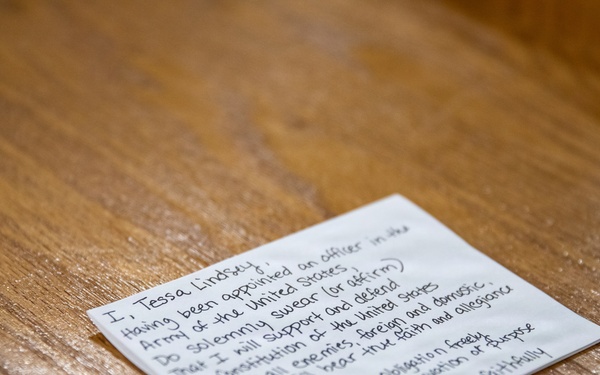 I, Tessa Lindsey,
Having been appointed an officer in the
Army of the United States,
Do solemnly swear (or affirm)
That I will support and defend
Constitution of the United States
all enemies, foreign and domestic,
bear true faith and allegiance
obligation freely
of purpose
faithfully